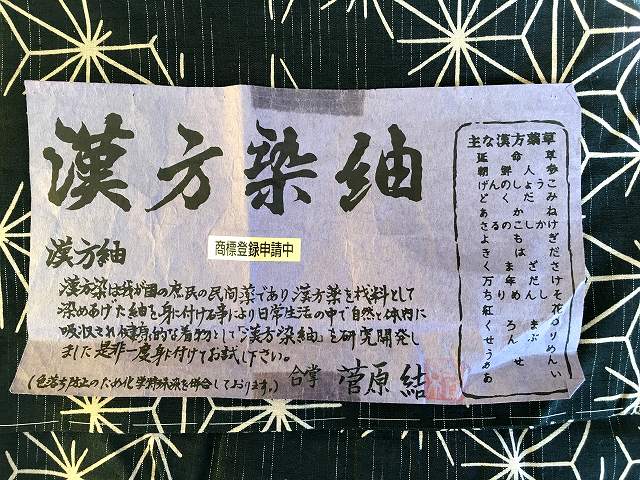 漢方染紬
漢方紬
商標登録申請中
漢方染は我が国の庶民の民間薬であり漢方薬を材料として
染めあげた紬を身に付ける事により日常生活の中で自然と体内に
吸収され健康的な着物として「漢方染紬」を研究開発し
ました是非一度身に付けてお試し下さい。
(色落ち防止のため化学染を併合しております。)
合掌 菅原 結
主な漢方薬草
延命草
朝鮮人参
げんのしょうこ
どくだみ
あかね
さるのこしかけ
よもぎ
きはだ
くまざさ
万年だけ
ちりめんしそ
紅花